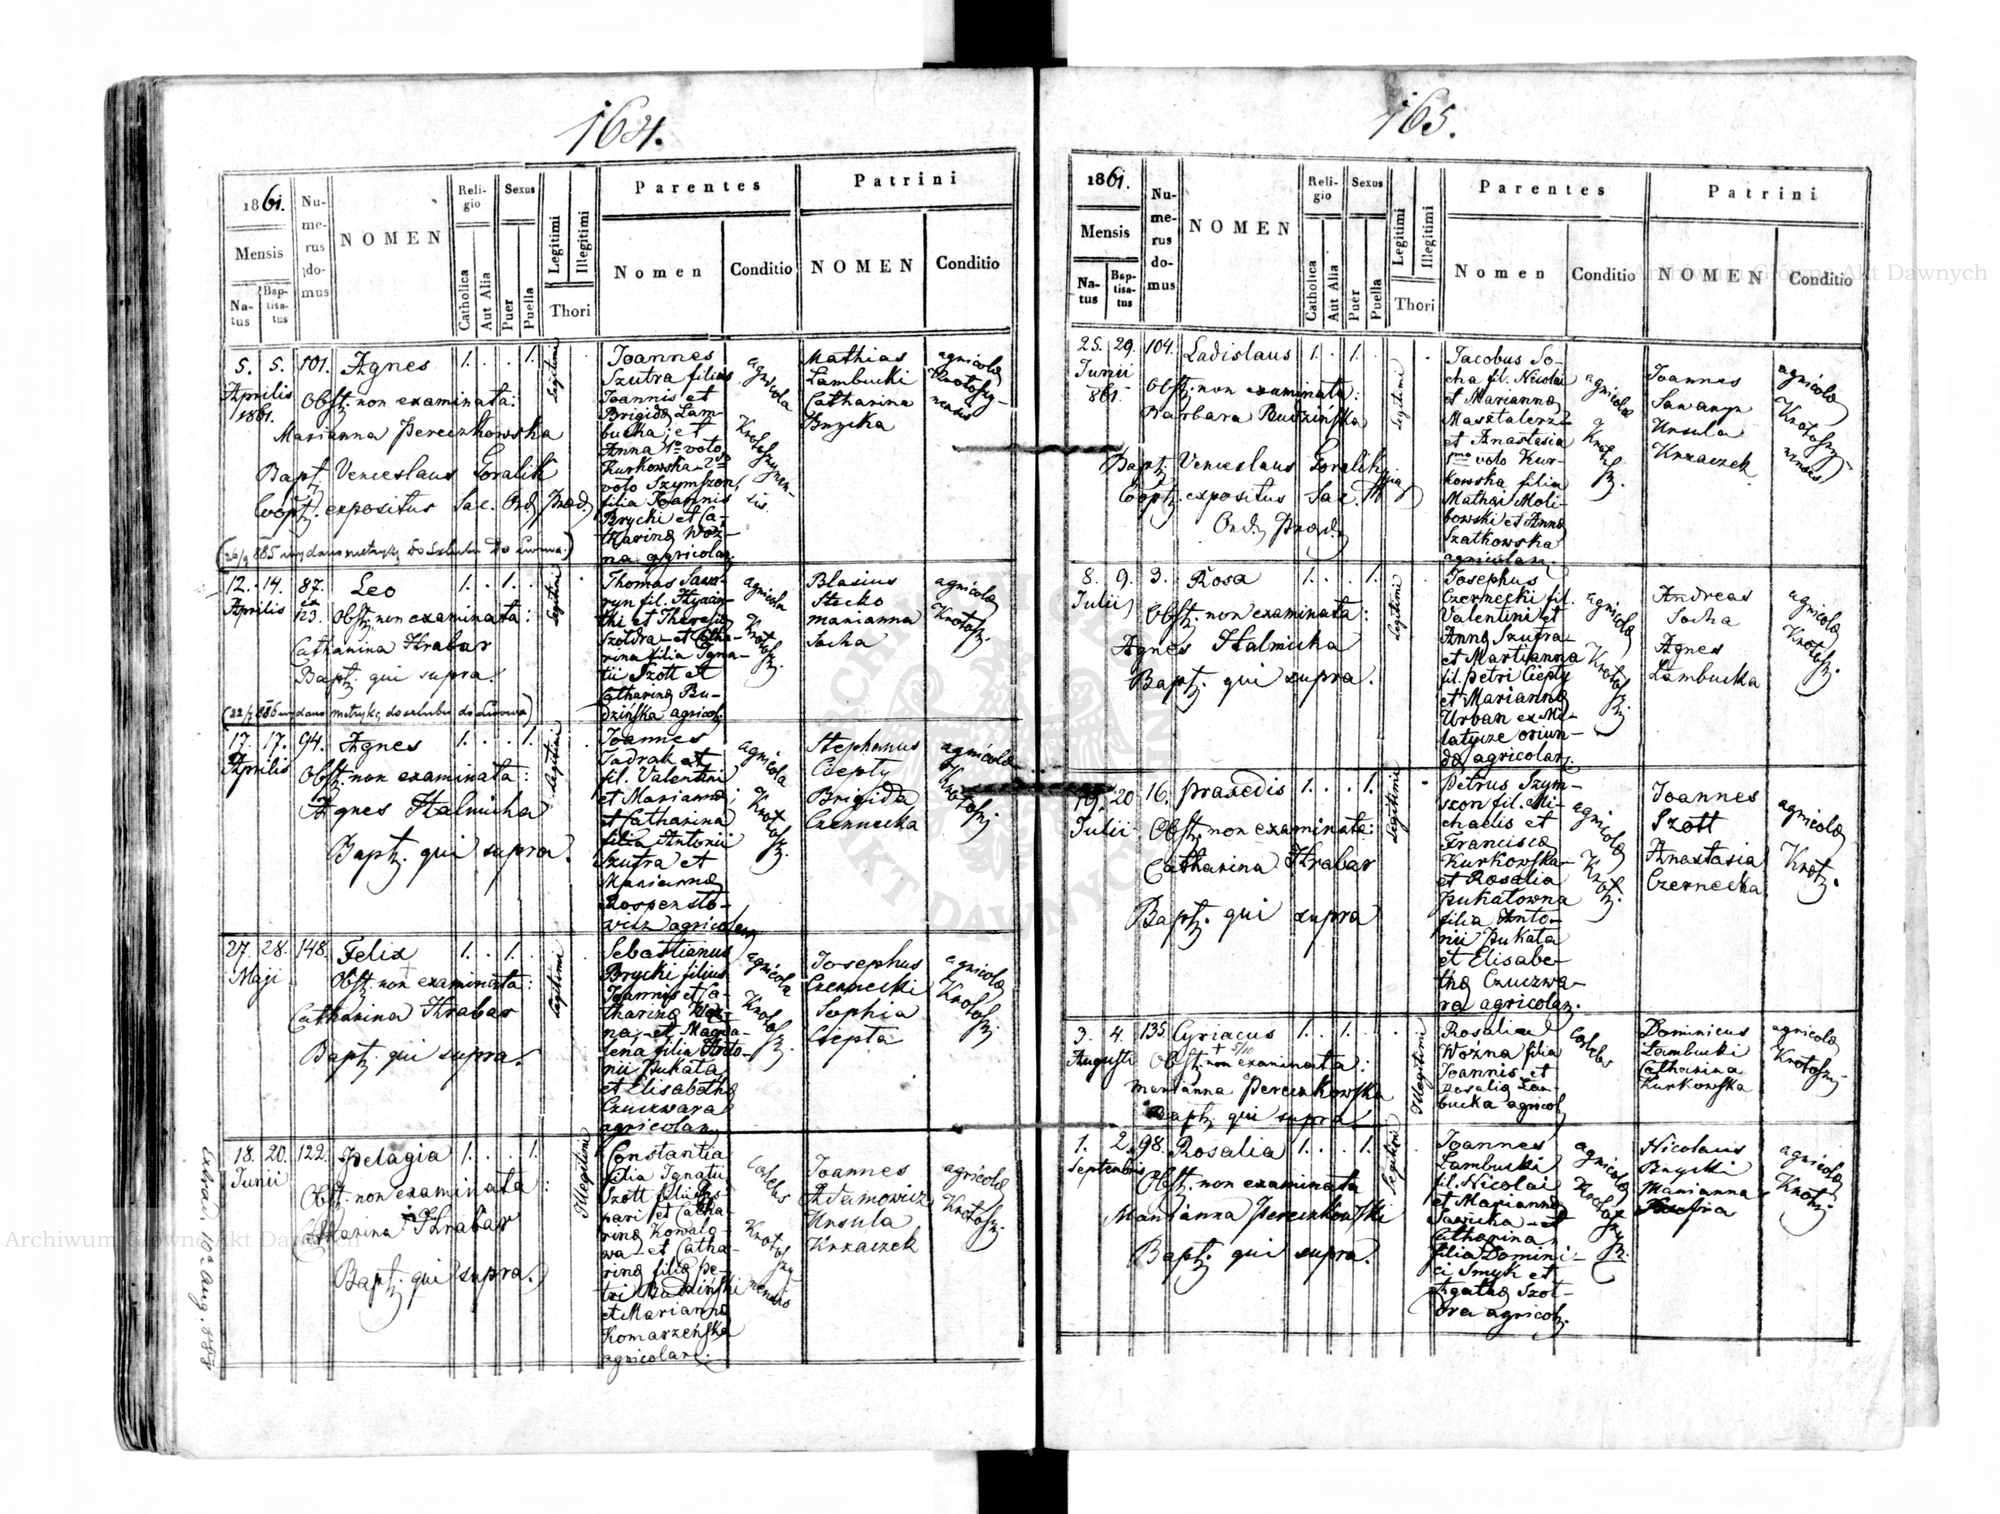 164.
1861.
Mensis
Na-
tus
Bap-
tisa-
tus
Nu-
me-
rus
do-
mus
NOMEN
Reli-
gio
Catholica
Aut Alia
Sexus
Puer
Puella
Legitimi
Illegitimi
Thori
Parentes
Nomen
Conditio
Patrini
NOMEN
Conditio
5. 5. 101. Agnes 1. . . 1.
Aprilis
1861.
Obst. non examinata:
Marianna Pereczkowska
Bapt. Venceslaus Goralik
Coop. expositus Sac. Ord. Præd.
legitimi
Joannes
Szutra filius
Joannis et
Brigidæ Lam-
bucka; et
Anna 1mo voto
Kurkowska 2do
voto Szymszon,
filia Joannis
Brycki et Ca-
tharinæ Woź-
na agricolar.
agricola
Krotoszynen-
sis.
Mathias
Lambucki
Catharina
Brycka
agricolæ
Krotoszy-
nensis
12. 14. 87. Leo 1. . 1. .
Aprilis
ex
123.
Obst. non examinata:
Catharina Hrabar
Bapt. qui supra.
legitimi
Thomas Sawa-
ryn fil. Hyacin-
thi et Theresiæ
Szołdra et Catha-
rina filia Igna-
tii Szott et
Catharinæ Bu-
dzińska agricol.
agricolæ
Krotosz.
Blasius
Stecko
Marianna
Socha
agricolæ
Krotosz.
17. 17. 94. Agnes 1. . . 1.
Aprilis
Obst. non examinata:
Agnes Halmicha
Bapt. qui supra.
legitimi
Joannes
Jadrak et
fil. Valentini
et Mariannæ;
et Catharina
filia Antonii
Szutra et
Mariannæ
Rospensto-
wicz agricolarum
agricola
Krotosz.
Stephanus
Ciepły
Brigida
Czernecka
agricolæ
Krotosz.
27. 28. 148. Felix 1. . 1. .
Maji
Obst. non examinata:
Catharina Hrabar
Bapt. qui supra.
legitimi
Sebastianus
Brycki filius
Joannis et Ca-
tharinæ Woź-
na, et Magda-
lena filia Anto-
nii Pukata
et Elisabethæ
Czuczwara
agricolar.
agricola
Krotosz.
Josephus
Czernecki
Sophia
Ciepta
agricolæ
Krotosz.
18. 20. 122. Pelagia 1. . . 1.
Junii
Obst. non examinata:
Catharina Hrabar
Bapt. qui supra.
Illegitimi
Constantia
filia Ignatii
Szott filii Gas-
pari et Catha-
rinæ Kowalo-
wa et Catha-
rinæ filiæ Pe-
tri Budziński
et Mariannæ
Komarzeńska
agricolar.
Coelebs
Krotoszy-
nensis
Joannes
Adamowicz
Ursula
Krzaczek
agricolæ
Krotosz.
Extrad. 10a Aug. 888
165.
1861.
Mensis
Na-
tus
Bap-
tisa-
tus
Nu-
me-
rus
do-
mus
NOMEN
Reli-
gio
Catholica
Aut Alia
Sexus
Puer
Puella
Legitimi
Illegitimi
Thori
Parentes
Nomen
Conditio
Patrini
NOMEN
Conditio
25. 29. 104. Ladislaus 1. . 1. .
Junii
861.
Obst. non examinata:
Barbara Budzińska
Bapt. Venceslaus Goralik
Coop. expositus Sac.
Ord. Præd.
legitimi
Jacobus So-
cha fil. Nicolai
et Mariannæ
Masztalerz
et Anastasia
1mo voto Kur-
kowska filia
Mathæi Moli-
bowski et Annæ
Szatkowska
agricolar.
agricolæ
Krotosz.
Joannes
Sawaryn
Ursula
Krzaczek
agricolæ
Krotoszy-
nensis
8. 9. 3. Rosa 1. . . 1.
Julii
Obst. non examinata:
Agnes Halmicha
Bapt. qui supra.
legitimi
Josephus
Czernecki fil.
Valentini et
Annæ Szutra
et Martianna
fil. Petri Ciepły
et Mariannæ
Urban ex Mi-
latycze oriun-
dæ agricolar.
agricolæ
Krotosz.
Andreas
Socha
Agnes
Lambucka
agricolæ
Krotosz.
19. 20 16. Praxedis 1. . . 1.
Julii
Obst. non examinata:
Catharina Hrabar
Bapt. qui supra
legitimi
Petrus Szym-
szon fil. Mi-
chaelis et
Franciscæ
Kurkowska
et Rosalia
Pukatowna
filia Anto-
nii Pukata
et Elisabe-
thæ Czuczwa-
ra agricolar.
agricolæ
Krotosz.
Joannes
Szott
Anastasia
Czernecka
agricolæ
Krotz.
3. 4. 135. Cyriacus 1. . 1. .
Augusti
+ 5/10
Obst. non examinata:
Marianna Pereczkowska
Bapt. qui supra
Illegitimi
Rosalia
Woźna filia
Joannis et
Rosaliæ Lam-
bucka agricol.
Coelebs
Dominicus
Lambucki
Catharina
Kurkowska
agricolæ
Krotosz.
1. 2. 98. Rosalia 1. . . 1.
Septembris
Obst. non examinata
Marianna Pereczkowski
Bapt. qui supra.
legitimi
Joannes
Lambucki
fil. Nicolai
et Mariannæ
Sawicka et
Catharina
filia Domini-
ci Smyk et
Agathæ Szoł-
dra agricol.
agricolæ
Krotosz.
Nicolaus
Brycki
Marianna
agricolæ
Krotz.
Archiwum Główne Akt Dawnych
Archiwum Główne Akt Dawnych
ARCHIWUM GŁÓWNE AKT DAWNYCH